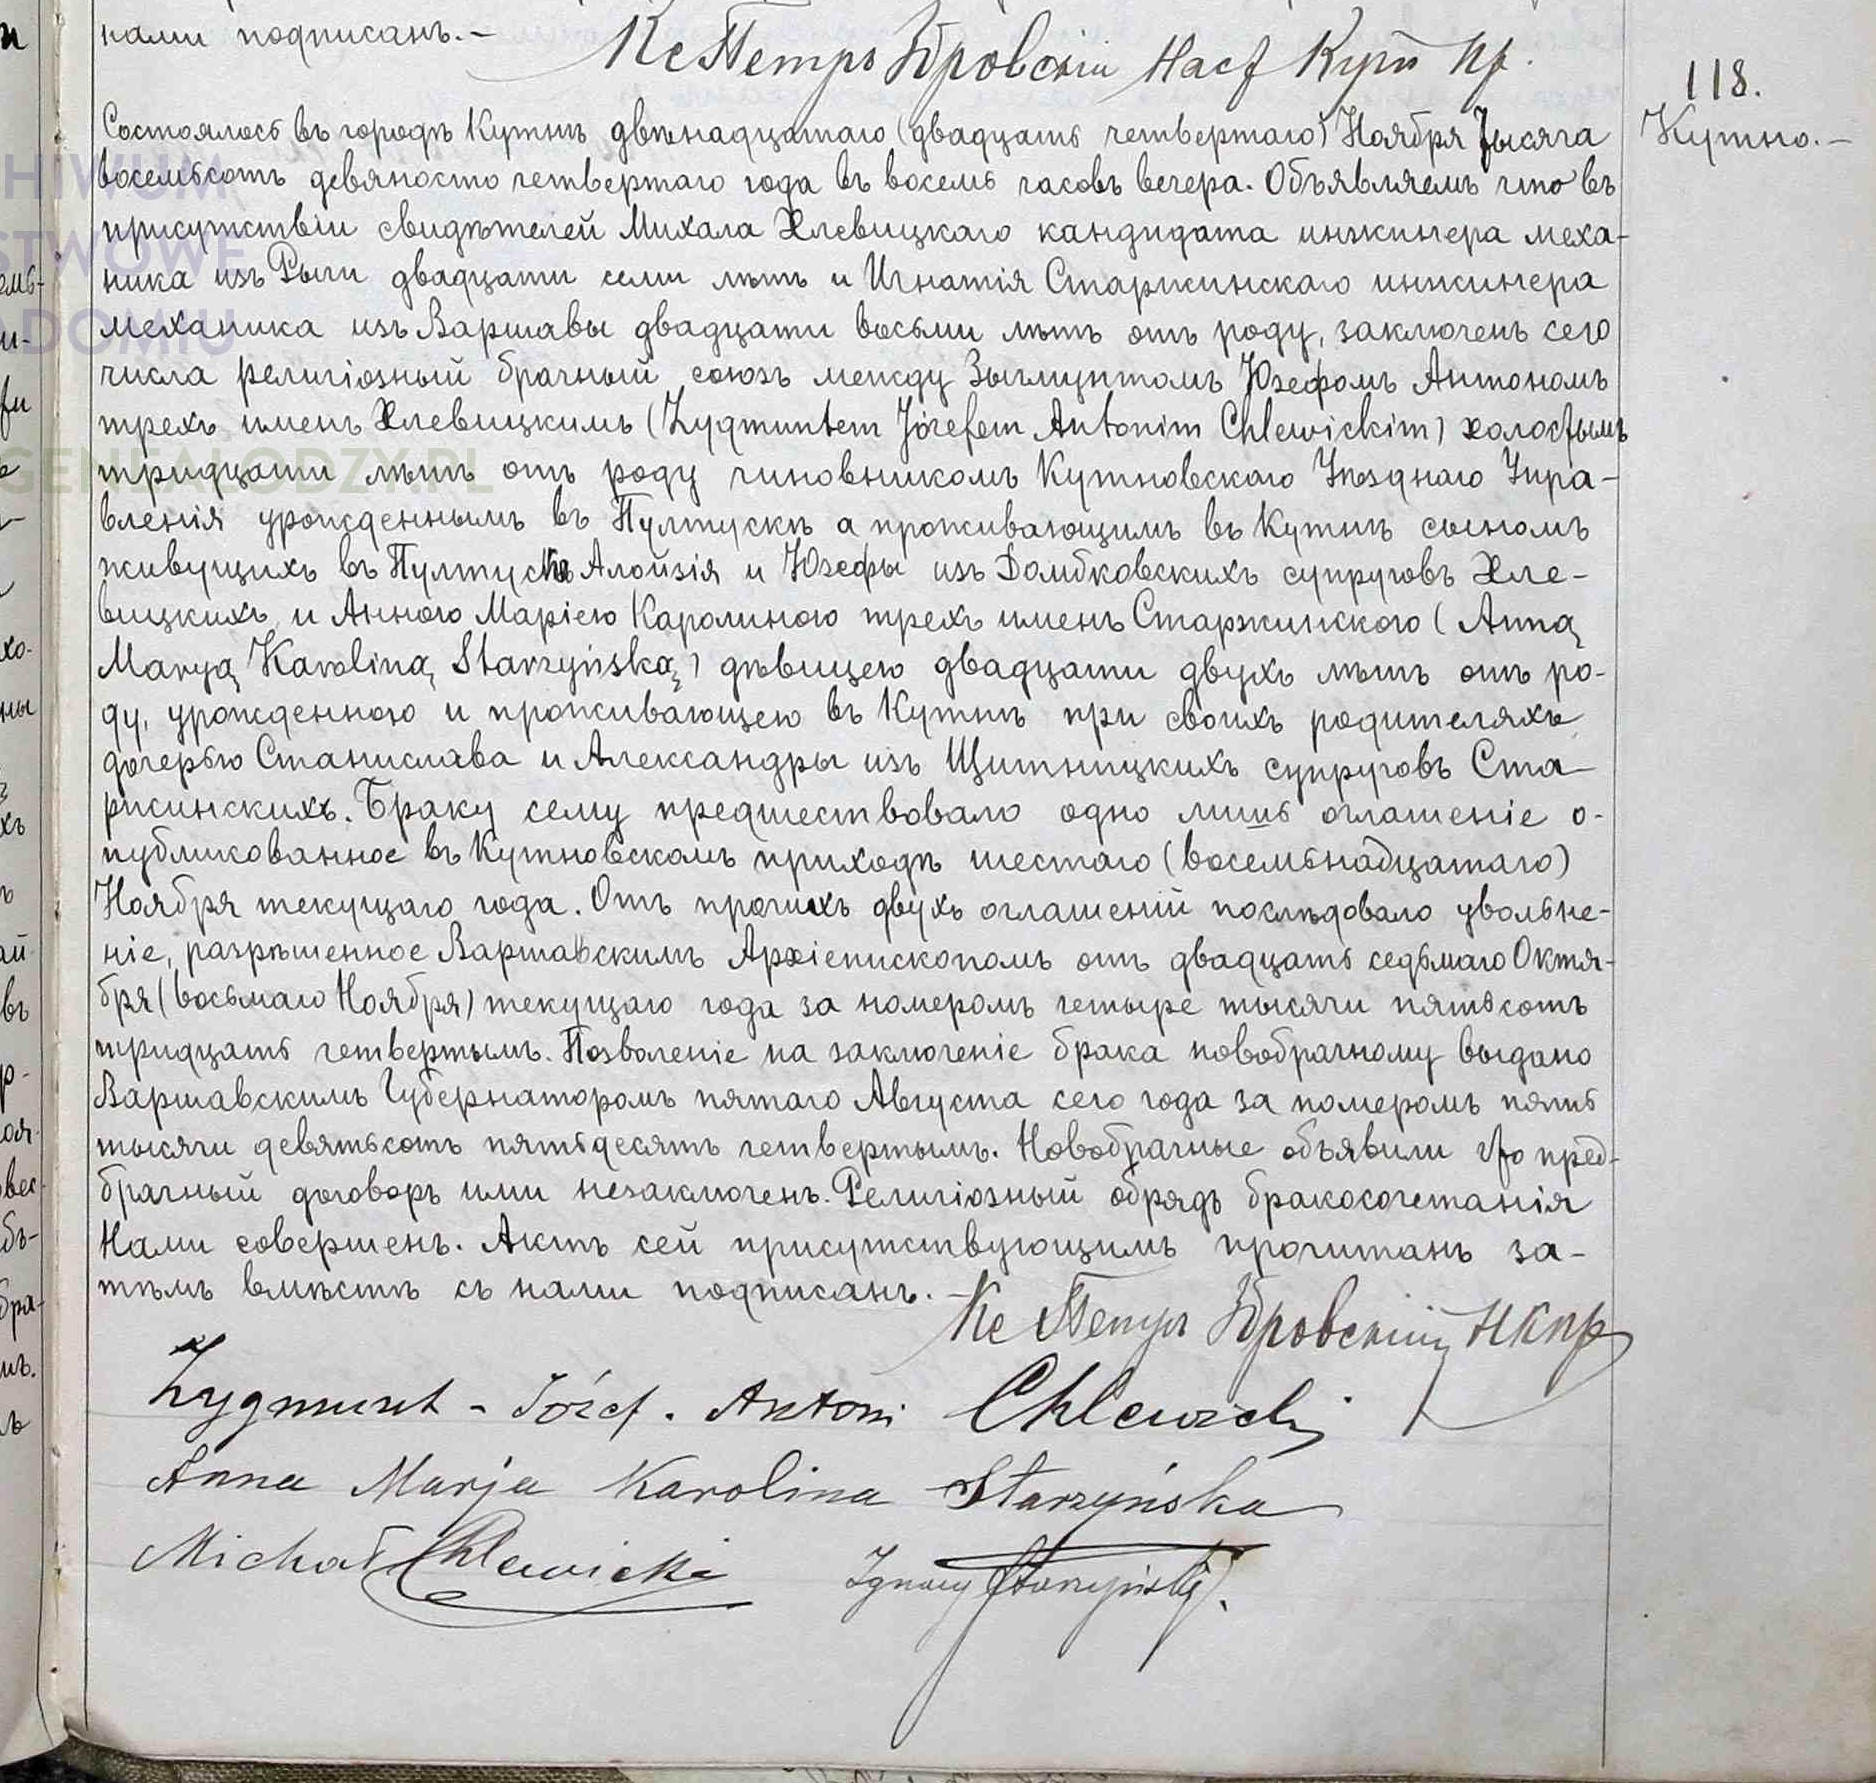 нами подписанъ.—
Кс Петръ Бровскій Наст Кутн пр.
118.
Кутно.—
Состоялось въ городѣ Кутнѣ двѣнадцатаго (двадцать четвертаго) Ноября тысяча
восемьсотъ девяносто четвертаго года въ восемь часовъ вечера. Объявляемъ что въ
присутствіи свидѣтелей Михала Хлевицкаго кандидата инжинера меха-
ника изъ Риги двадцати семи лѣтъ и Игнатія Старжинскаго инжинера
механика изъ Варшавы двадцати восьми лѣтъ отъ роду, заключенъ сего
числа религіозный брачный союзъ между Зыгмунтомъ Юзефомъ Антономъ
трехъ именъ Хлевицкимъ (Zygmuntem Józefem Antonim Chlewickim) холостымъ
тридцати лѣтъ отъ роду чиновникомъ Кутновскаго Уѣзднаго Упра-
вленія урожденнымъ въ Пултускѣ а проживающимъ въ Кутнѣ сыномъ
живущихъ въ Пултускѣ Алойзія и Юзефы изъ Домбковскихъ супруговъ Хле-
вицкихъ и Анною Маріею Каролиною трехъ именъ Старжинскою (Anną
Maryą Karoliną Starzyńską) дѣвицею двадцати двухъ лѣтъ отъ ро-
ду, урожденною и проживающею въ Кутнѣ при своихъ родителяхъ
дочерью Станислава и Александры изъ Щитницкихъ супруговъ Ста-
ржинскихъ. Браку сему предшествовало одно лишь оглашеніе о-
публикованное въ Кутновскомъ приходѣ шестаго (восемьнадцатаго)
Ноября текущаго года. Отъ прочихъ двухъ оглашеній послѣдовало увольне-
ніе, разрѣшенное Варшавскимъ Архіепископомъ отъ двадцать седьмаго Октя-
бря (восьмаго Ноября) текущаго года за номеромъ четыре тысячи пятьсотъ
тридцать четвертымъ. Позволеніе на заключеніе брака новобрачному выдано
Варшавскимъ Губернаторомъ пятаго Августа сего года за номеромъ пять
тысячи девятьсотъ пятьдесятъ четвертымъ. Новобрачные объявили что пред-
брачный договоръ ими незаключенъ. Религіозный обрядъ бракосочетанія
Нами совершенъ. Актъ сей присутствующимъ прочитанъ за-
тѣмъ вмѣстѣ съ нами подписанъ.—
Кс Петръ Бровскій НКпр
Zygmunt - Józef. Antoni Chlewicki
Anna Marja Karolina Starzyńska
Michał Chlewicki Ignacy Starzyński.